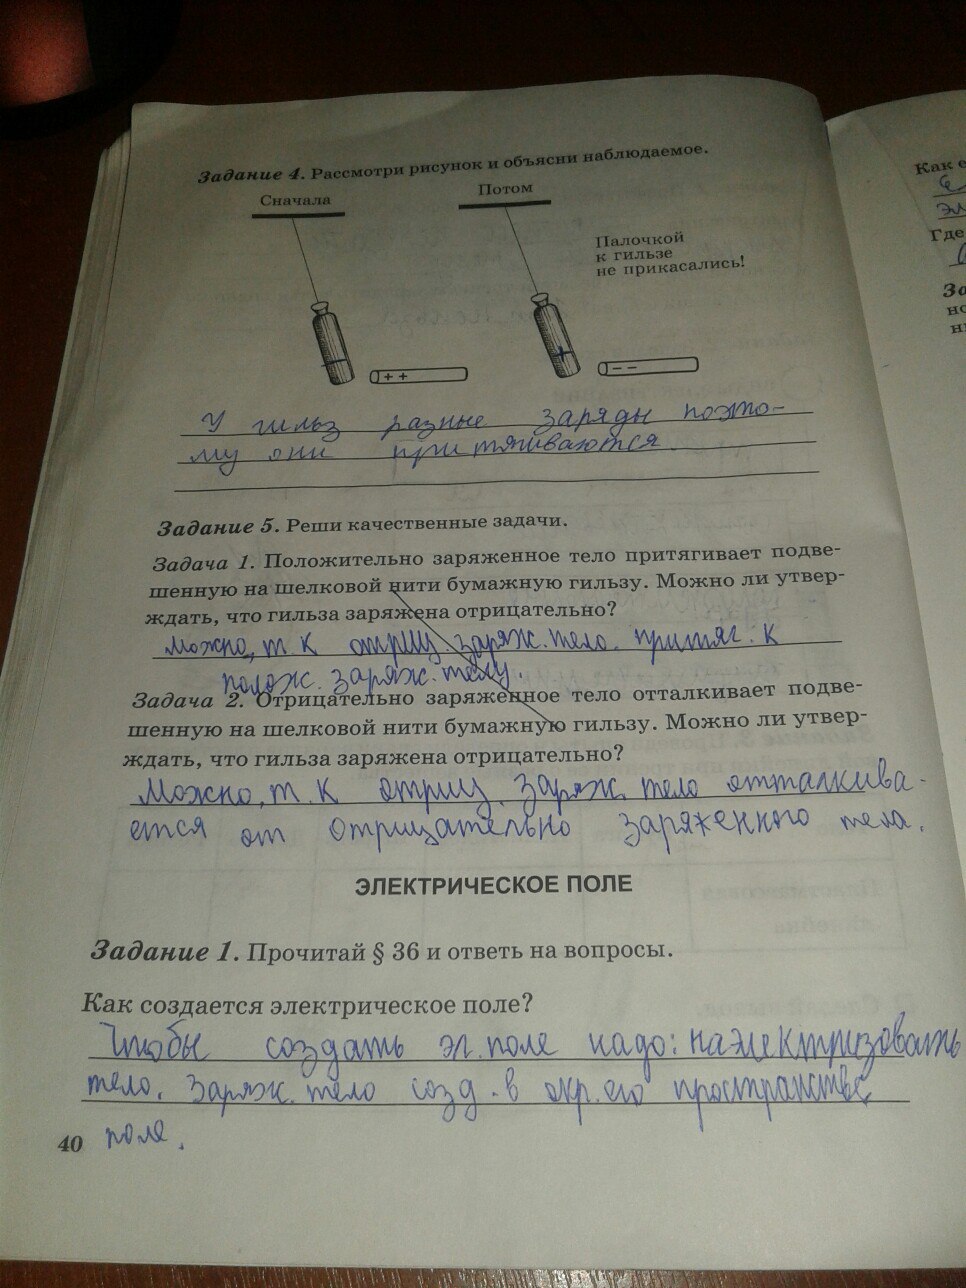 Задание 4. Рассмотри рисунок и объясни наблюдаемое.
Сначала
Потом
Палочкой
к гильзе
не прикасались!
–
+
+ +
– –
У гильз разные заряды поэто-
му они притягиваются.
Задание 5. Реши качественные задачи.
Задача 1. Положительно заряженное тело притягивает подве-
шенную на шелковой нити бумажную гильзу. Можно ли утвер-
ждать, что гильза заряжена отрицательно?
Можно, т. к отриц. заряж. тело. притяг. к
полож. заряж. телу.
Задача 2. Отрицательно заряженное тело отталкивает подве-
шенную на шелковой нити бумажную гильзу. Можно ли утвер-
ждать, что гильза заряжена отрицательно?
Можно, т. к отриц. заряж. тело отталкива-
ется от отрицательно заряженного тела.
ЭЛЕКТРИЧЕСКОЕ ПОЛЕ
Задание 1. Прочитай § 36 и ответь на вопросы.
Как создается электрическое поле?
Чтобы создать эл. поле надо: наэлектризовать
тело. Заряж. тело созд. в окр. его пространстве
поле.
40
Как
Где
За
но